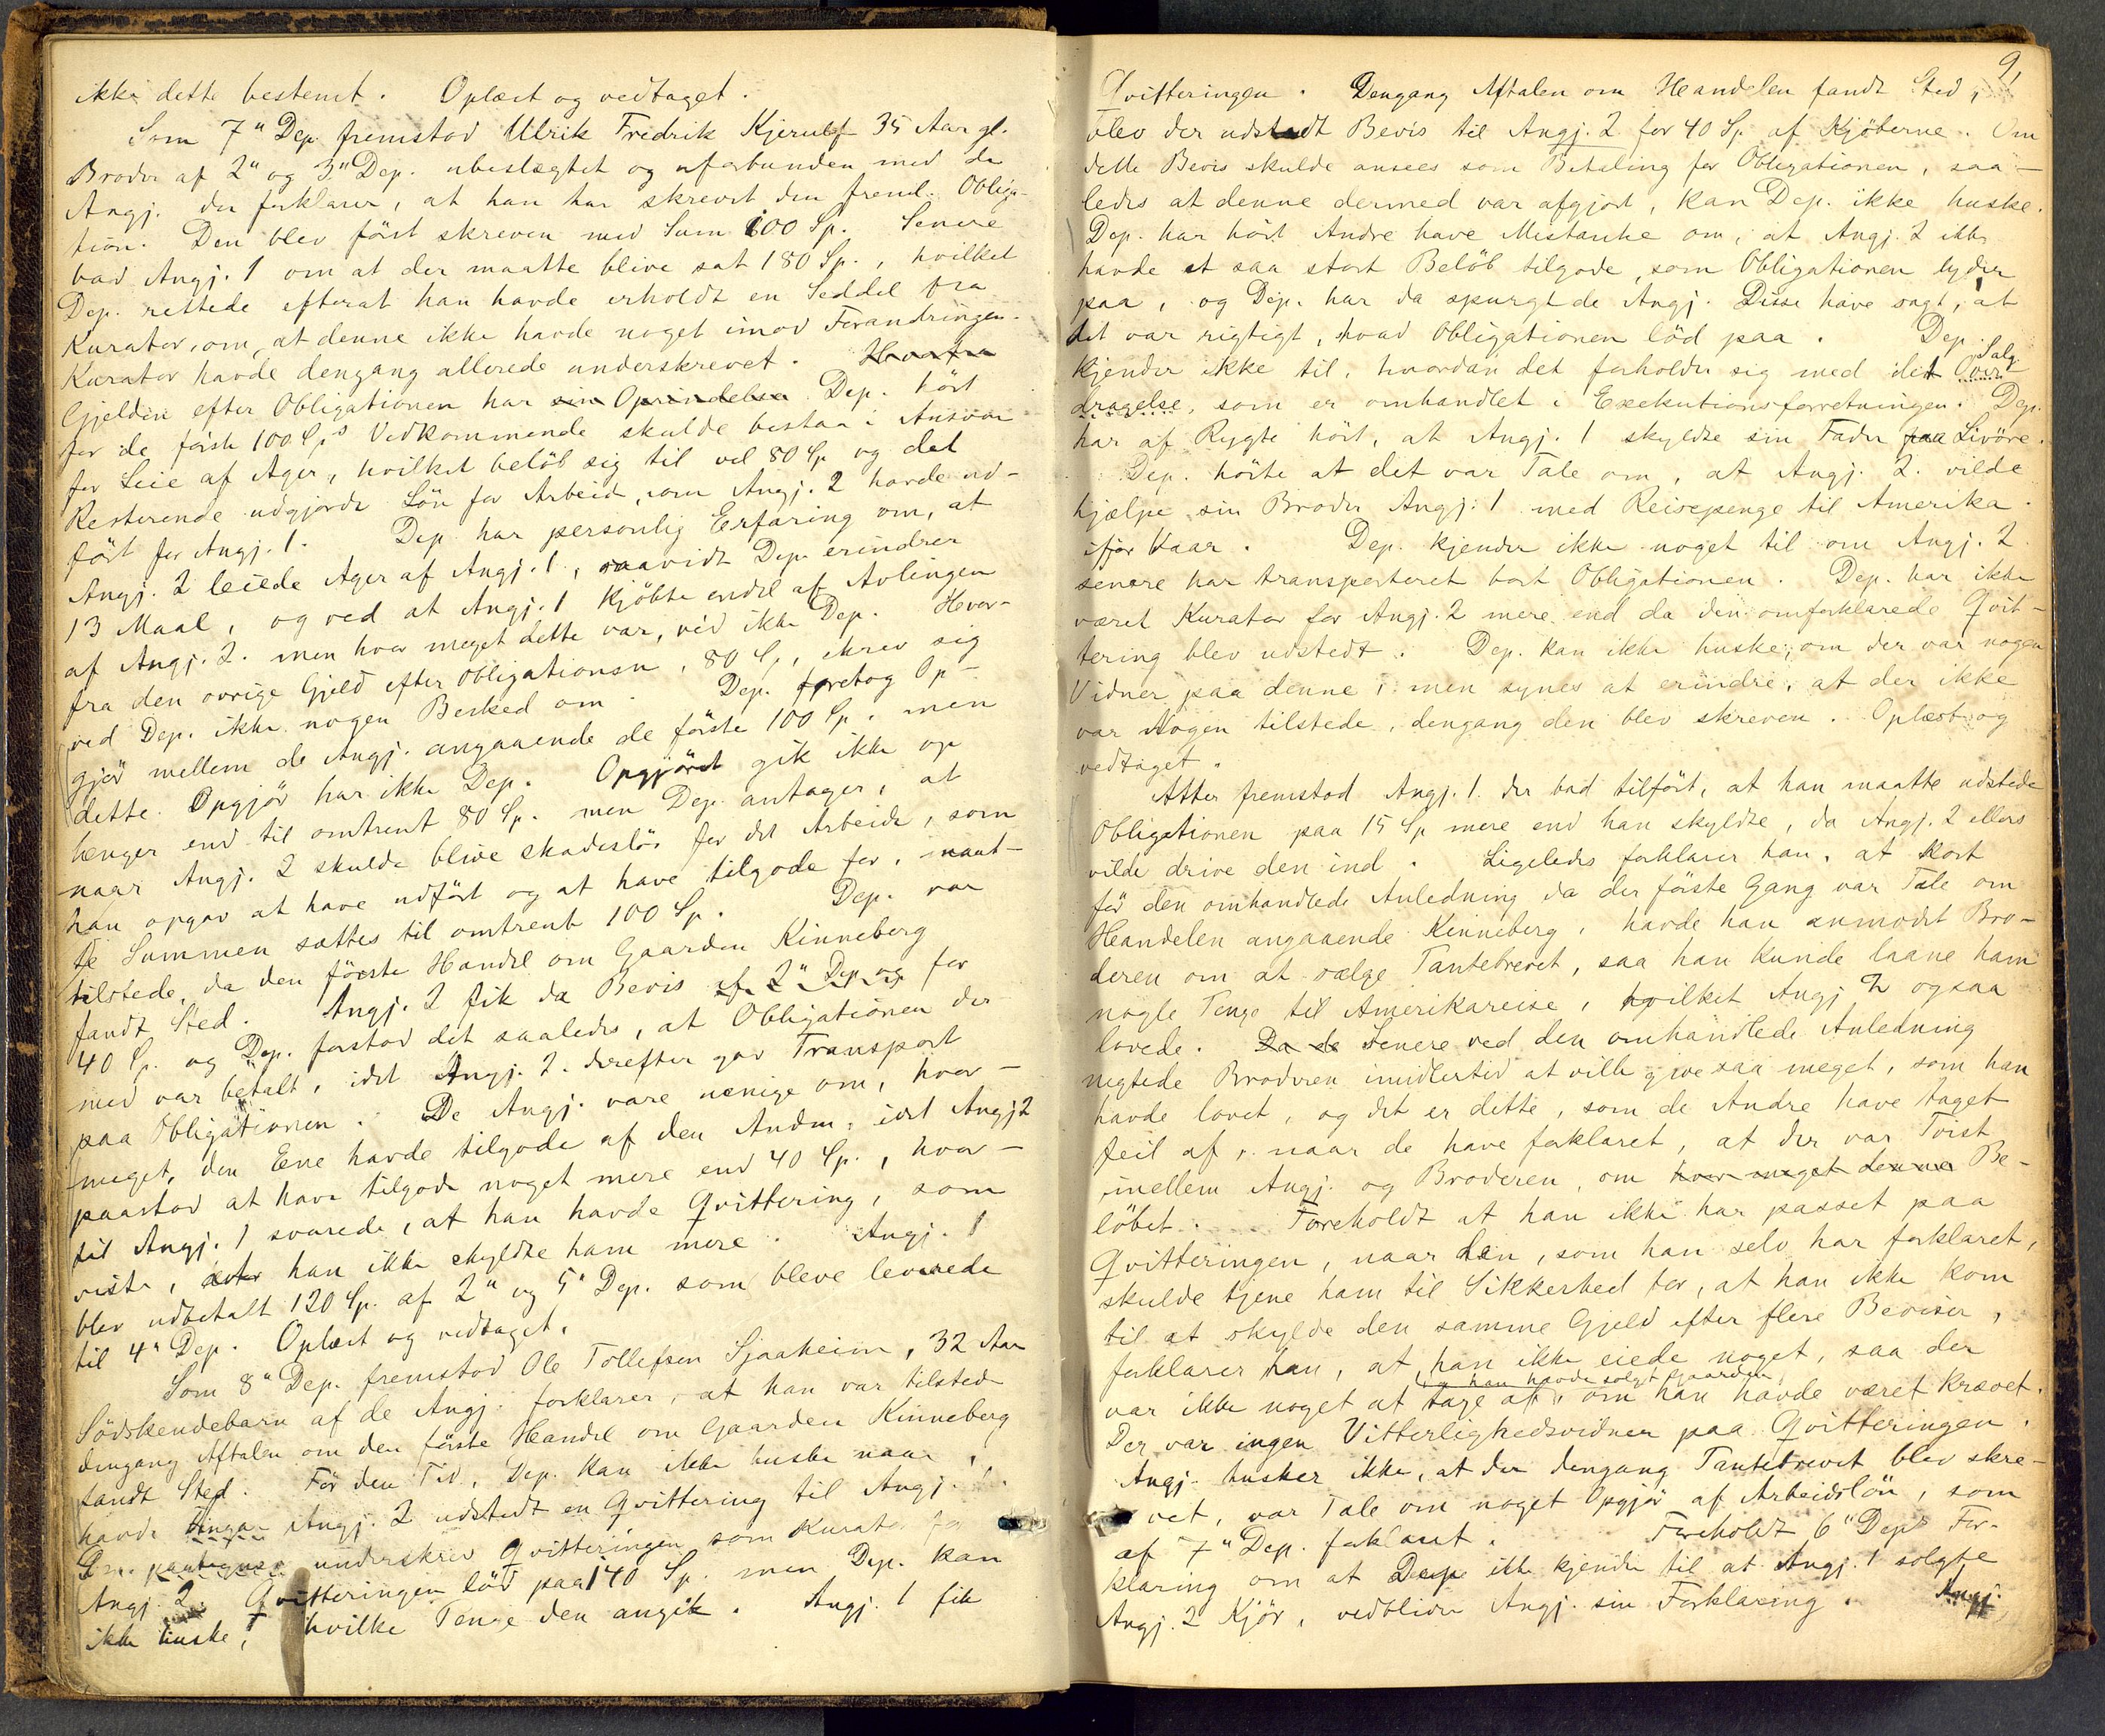 ikke dette bestemt. Oplæst og vedtaget.
Som 7" Dep. fremstod Ulrik Fredrik Kjerulf 35 Aar gl.
Broder af 2" og 3" Dep. ubeslægtet og uforbunden med de
Angj. der forklarer, at han har skrevet den freml. Obliga-
tion. Den blev först skreven med Sum 100 Sp. Senere
bad Angj. 1 om at der maatte blive sat 180 Sp., hvilket
Dep. rettede efterat han havde erholdt en Seddel fra
Kurator, om, at denne ikke havde noget imod Forandringen.
Kurator havde dengang allerede underskrevet. Hvorfra
Gjelden efter Obligationen har sin Oprindelse Dep. hört
for de förste 100 Sp. Vedkommende skulde bestaa i Ansvar
for Leie af Ager, hvilket belöb sig til vel 80 Sp. og det
Resterende udgjorde Lön for Arbeid, som Angj. 2 havde ud-
fört for Angj. 1. Dep. har personlig Erfaring om, at
Angj. 2 leiede Ager af Angj. 1, saavidt Dep. erindrer
13 Maal, og ved at Angj. 1 Kjöbte endel af Avlingen
af Angj. 2. men hvor meget dette var, ved ikke Dep. Hvor-
fra den övrige Gjeld efter Obligationen, 80 Sp, skrev sig
ved Dep. ikke nogen Besked om. Dep. foretog Op-
gjör mellem de Angj. angaaende de förste 100 Sp. men
dette Opgjör har ikke Dep. Opgjöret gik ikke op
længer end til omtrent 80 Sp. men Dep. antager, at
naar Angj. 2 skulde blive skadeslös for det Arbeide, som
han opgav at have udfört og at have tilgode for, maat-
te Summen sættes til omtrent 100 Sp. Dep. var
tilstede, da den förste Handel om Gaarden Kinneberg
fandt Sted. Angj. 2 fik da Bevis af 2" Dep. og for
40 Sp. og Dep. forstod det saaledes, at Obligationen der-
med var betalt, idet Angj. 2. derefter gav Transport
paa Obligationen. De Angj. vare uenige om, hvor-
meget, den Ene havde tilgode af den Anden, idet Angj 2
paastod at have tilgode noget mere end 40 Sp., hvor-
til Angj. 1 svarede, at han havde Qvittering, som
viste, at han ikke skyldte ham mere. Angj. 1
blev udbetalt 120 Sp. af 2" og 5" Dep. som bleve leverede
til 4" Dep. Oplæst og vedtaget.
Som 8" Dep. fremstod Ole Tollefsen Sjaaheim, 32 Aar
Södskendebarn af de Angj. forklarer, at han var tilstede
dengang Aftalen om den förste Handel om Gaarden Kinneberg
fandt Sted. För den Tid, Dep. kan ikke huske naar,
havde Angj. 2 udstedt en Qvittering til Angj. 1.
Dep. underskrev Qvitteringen som Kurator for
Angj. 2. Qvitteringen löd paa 140 Sp. men Dep. kan
ikke huske, hvilke Penge den angik. Angj. 1 fik
9,
Qvitteringen. Dengang Aftalen om Handelen fandt Sted,
blev der udstedt Bevis til Angj. 2 for 40 Sp. af Kjöberne. Om
dette Bevis skulde ansees som Betaling for Obligationen, saa-
ledes at denne dermed var afgjort, kan Dep. ikke huske.
Dep. har hört Andre have Mistanke om, at Angj. 2 ikke
havde et saa stort Belöb tilgode, som Obligationen lyder
paa, og Dep. har da spurgt de Angj. Disse have sagt, at
det var rigtigt, hvad Obligationen löd paa. Dep.
kjender ikke til, hvordan det forholder sig med det Over Salg
dragelse, som er omhandlet i Exekutionsforretningen. Dep.
har af Rygte hört, at Angj. 1 skyldte sin Fader paa Livöre.
Dep. hörte at det var Tale om, at Angj. 2. vilde
hjælpe sin Broder Angj. 1 med Reisepenge til Amerika
ifjor Vaar. Dep. kjender ikke noget til om Angj. 2
senere har transporteret bort Obligationen. Dep. har ikke
været Kurator for Angj. 2 mere end da den omforklarede Qvit-
tering blev udstedt. Dep. kan ikke huske, om der var nogen
Vidner paa denne, men synes at erindre, at der ikke
var Nogen tilstede, dengang den blev skreven. Oplæst og
vedtaget.
Atter fremstod Angj. 1. der bad tilfört, at han maatte udstede
Obligationen paa 15 Sp mere end han skyldte, da Angj. 2 ellers
vilde drive den ind. Ligeledes forklarer han, at kort
för den omhandlede Anledning da der förste Gang var Tale om
Handelen angaaende Kinneberg, havde han anmodet Bro-
deren om at sælge Pantebrevet, saa han kunde laane ham
nogle Penge til Amerikareise, hvilket Angj 2 ogsaa
lovede. Da de Senere ved den omhandlede Anledning
negtede Broderen imidlertid at ville give saa meget, som han
havde lovet, og det er dette, som de Andre have taget
feil af, naar de have forklaret, at der var Tvist
imellem Angj. og Broderen, om hvor meget denne Be-
löbet. Foreholdt at han ikke har passet paa
Qvitteringen, naar den, som han selv har forklaret,
skulde tjene ham til Sikkerhed for, at han ikke kom
til at skylde den samme Gjeld efter flere Beviser,
forklarer han, at han ikke eiede noget, saa der
da han havde solgt Gaarden,
var ikke noget at tage af, om han havde været krævet.
Der var ingen Vitterlighedsvidner paa Qvitteringen.
Angj. husker ikke, at der dengang Pantebrevet blev skre-
vet, var Tale om noget Opgjör af Arbeidslön, som
af 7" Dep. forklaret. Foreholdt 6" Deps For-
klaring om at Dep. ikke kjender til at Angj. 1 solgte
Angj. 2 Kjör, vedbliver Angj. sin Forklaring. Angj.